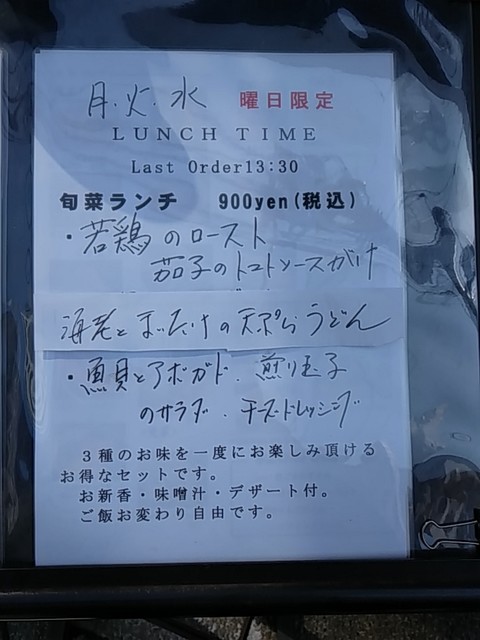 月.火.水 曜日限定
LUNCH TIME
Last Order13:30
旬菜ランチ 900yen(税込)
・若鶏のロースト
茄子のトマトソースがけ
海老とまいたけの天ぷらうどん
・魚貝とアボガド.煎り玉子
のサラダ.チーズドレッシング
3種のお味を一度にお楽しみ頂ける
お得なセットです。
お新香・味噌汁・デザート付。
ご飯お変わり自由です。